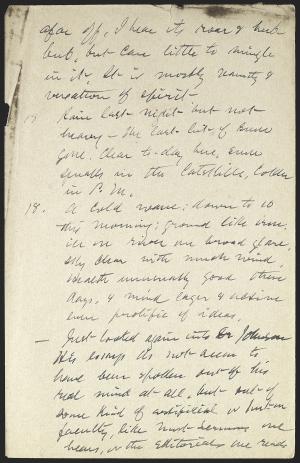 afar off, I hear its roar & hub
bub, but care little to mingle
in it. It is mostly vanity &
vexation of spirit
17 Rain last night but not
heavy – the last bit of snow
gone. Clear to-day here, snow
squalls in the Catskills, Colder
in P.M.
18. A Cold wave: down to 10
this morning; ground like iron;
ice on river one broad glare,
sky clear with much wind.
Health unusually good these
days, & mind eager & active
even prolific of ideas.
— Just looked again into Dr Johnson
His essays do not seem to
have been spoken out of his
real mind at all, but out of
some kind of artificial or put-on
faculty, like most sermons one
hears, or the editorials one reads